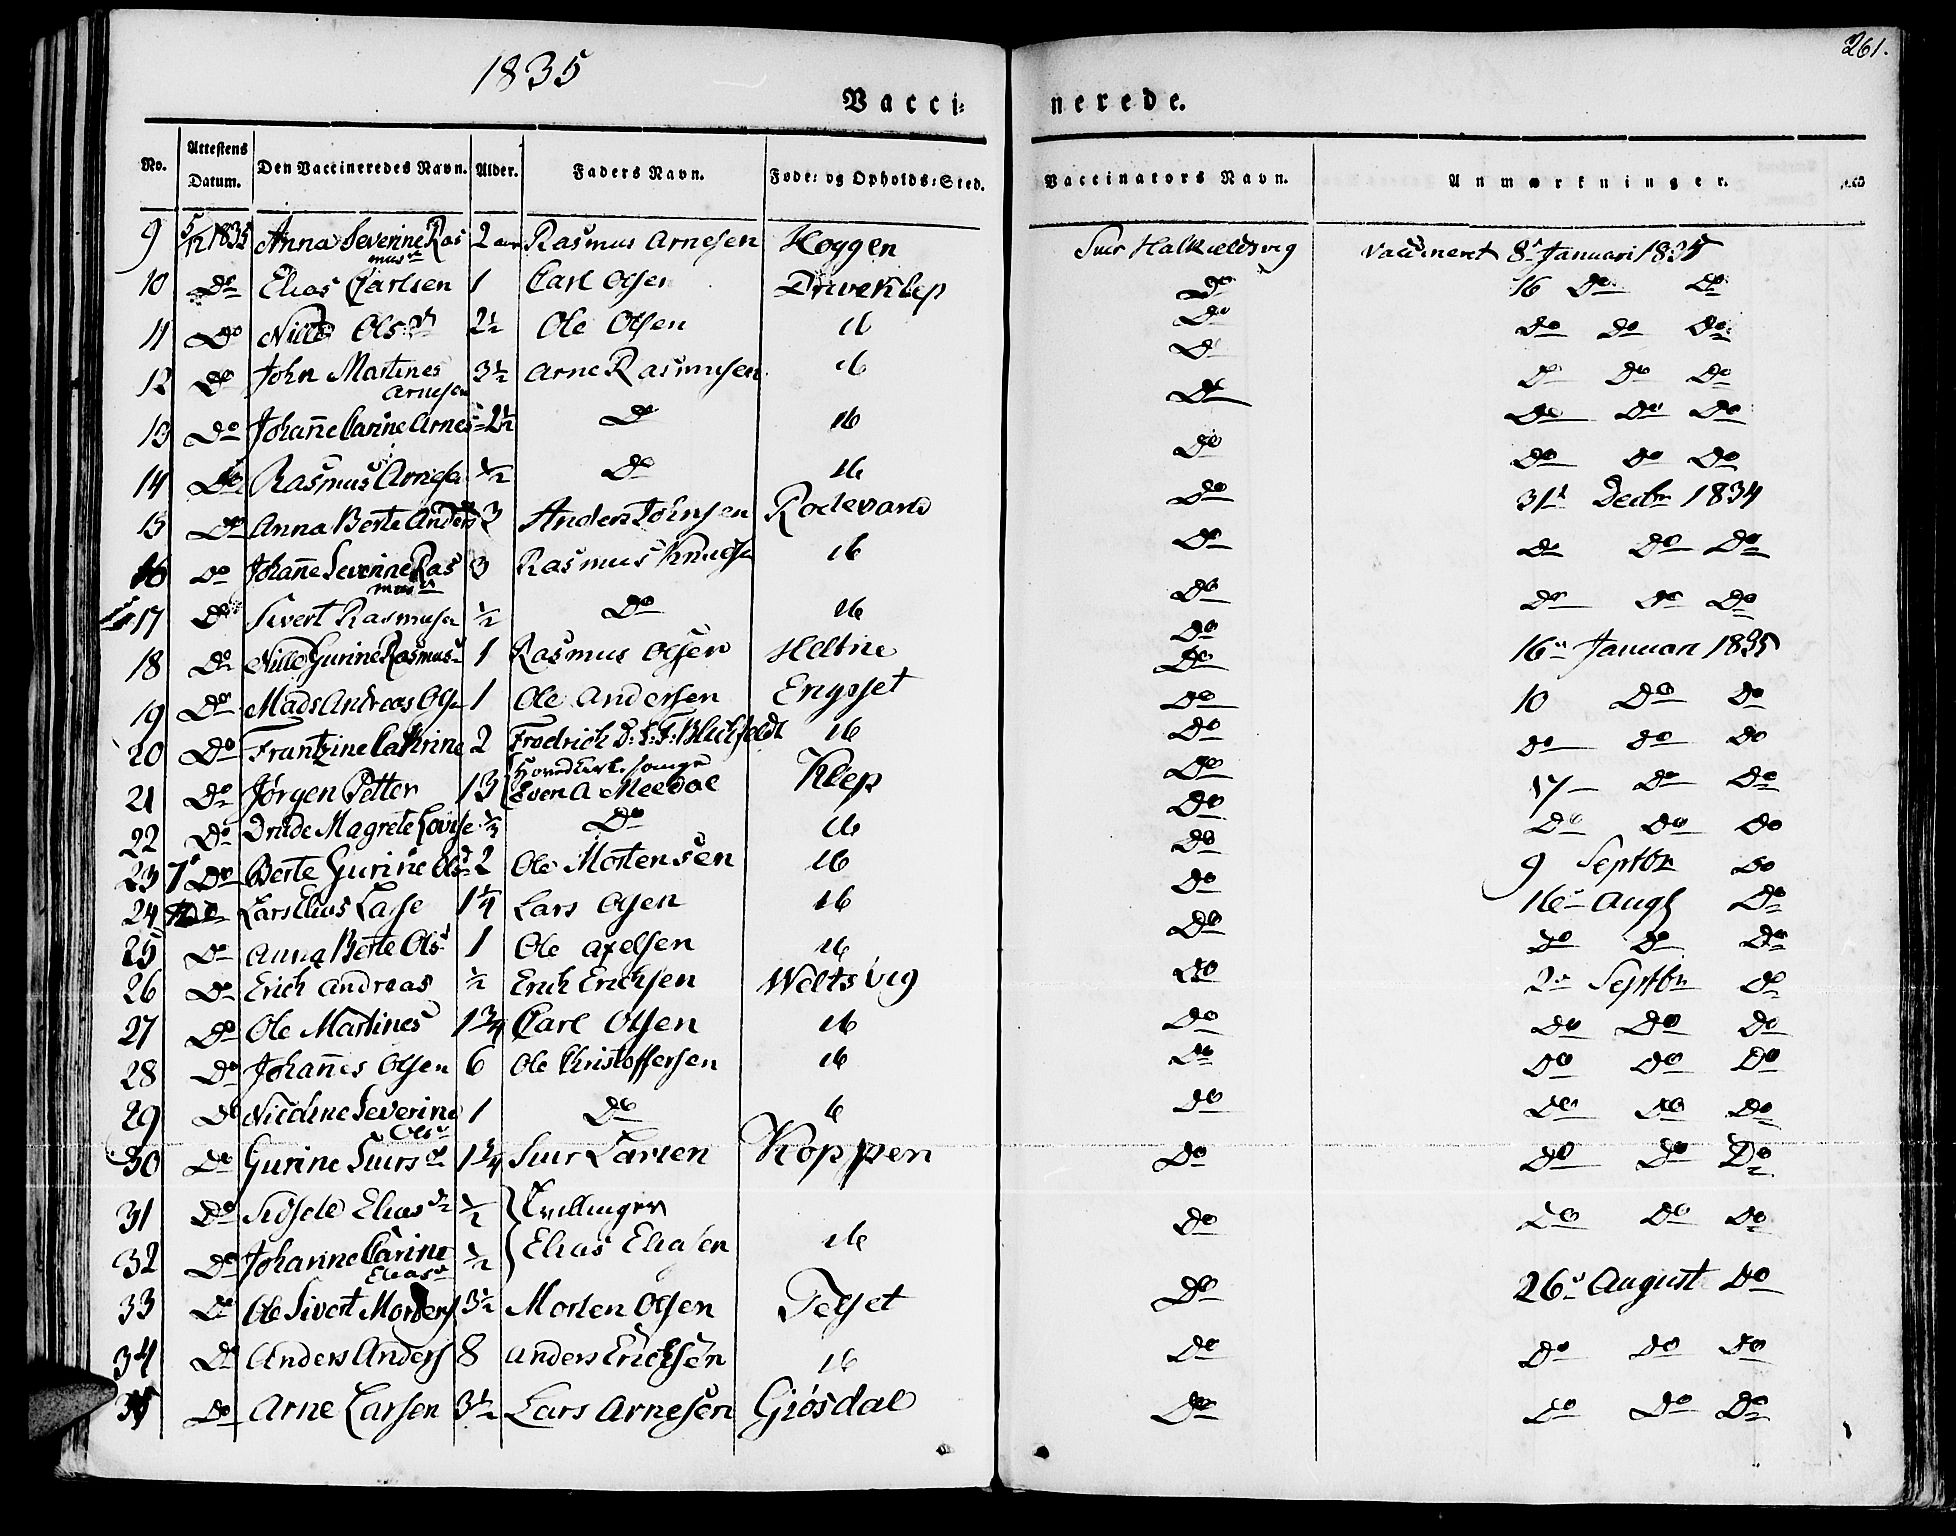 1835
261.
Vacci= nerede.
No. Attestens Datum. Den Vaccineredes Navn. Alder. Faders Navn. Føde= og Opholds=Sted. Vaccinators Navn. Anmærkninger.
9 5/12 1835 Anna Severine Ras mus d 2 aar Rasmus Arnesen Hoggen Siur Halkieldsvig Vaccineret 8d Januari 1835
10 Do Elias Carlsen 1 Carl Olsen Driveklep Do 16 Do Do
11 Do Nille Ols d 2½ Ole Olsen ib Do Do Do Do
12 Do John Martines Arnesen 3½ Arne Rasmusen ib Do Do Do Do
13 Do Johañe Carine Arnes 2½ Do ib Do Do Do Do
14 Do Rasmus Arnesen ½ Do ib Do Do Do Do
15 Do Anna Berte Anders 3 Anders Johnsen Rodevand Do 31d Decbr 1834
16 Do Johañe Severine Ras mus d 3 Rasmus Knudsen ib Do Do Do Do
17 Do Sivert Rasmusen ½ Do ib Do Do Do Do
18 Do Nille Gurine Rasmus 1 Rasmus Olsen Heltne Do 16d Januari 1835
19 Do Mads Andreas Olsen 1 Ole Andersen Engeset Do 10 Do Do
20 Do Frantzine Cathrine 2 Fredrich D: S: F: Blichfeldt ib Do Do Do Do
21 Do Jørgen Petter 13 Even A Meedal Klep Do 17 Do Do
22 Do Drude Magrete Lovise ⅓ Do ib Do Do Do Do
23 7d Do Berte Gurine Ols 2 Ole Mortensen ib Do 9 Septbr Do
24 Do Lars Elias Larse 1¼ Lars Olsen ib Do 16 Aug Do
25 Do Anna Berte Ols d 1 Ole Axelsen ib Do Do Do Do
26 Do Erich Andreas ½ Erich Erichsen Weltsvig Do 2d Septbr Do
27 Do Ole Martines 1¾ Carl Olsen ib Do Do Do Do
28 Do Johañes Olsen 6 Ole Christoffersen ib Do Do Do Do
29 Do Nicoline Severine Ols d 1 Do ib Do Do Do Do
30 Do Gurine Siurs d 1¾ Siur Larsen Koppen Do Do Do Do
31 Do Sidsele Elias d ½ Tvillinger Do Do Do Do
32 Do Johanne Carine Elias d ½ Elias Eliasen ib
33 Do Ole Sivert Mortens 3½ Morten Olsen Telset Do 26d August Do
34 Do Anders Anders 8 Anders Erichsen ib Do Do Do Do
35 Do Arne Larsen 3½ Lars Arnesen Giøsdal Do Do Do Do